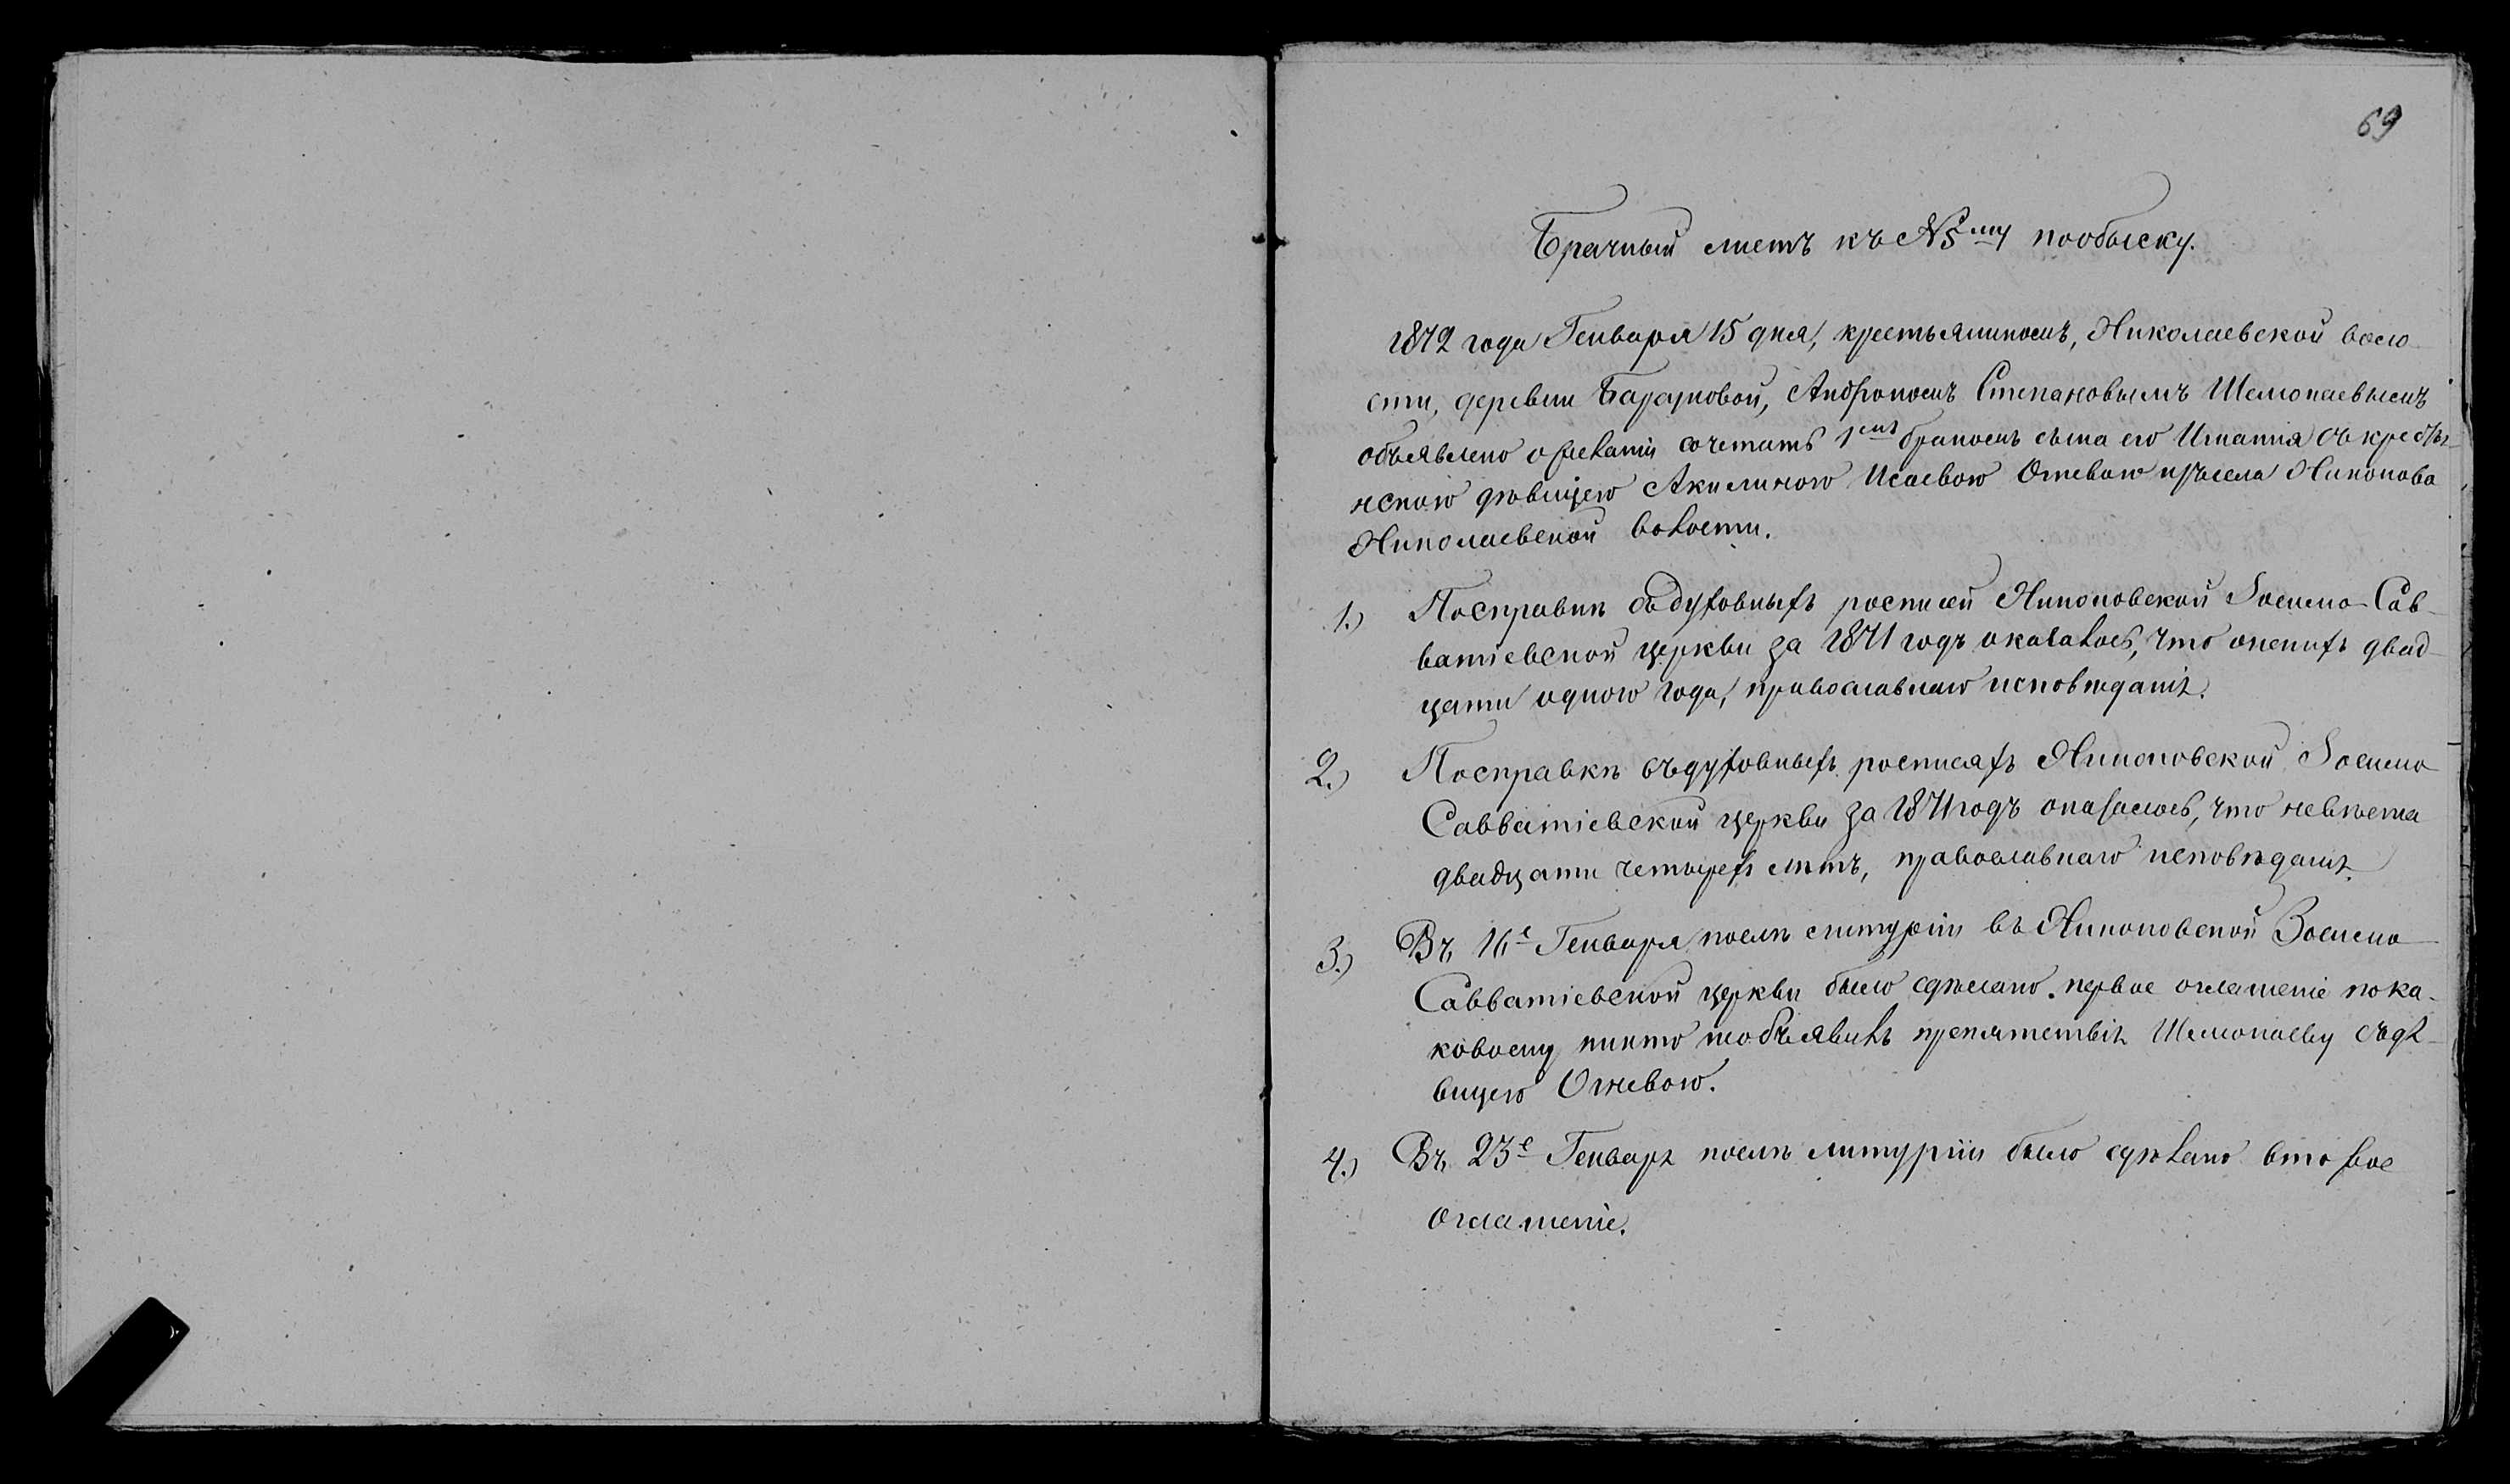 69
Брачный листъ къ №5му пообыску.
1872 года Генваря 15 дня, крестьяниномъ, Николаевской воло
сти, деревни Бараӊовой, Андрономъ Степановымъ Шемонаевымъ
объявлено о желаніи сочетать 1мъ бракомъ сына его Игнатія съ кресть-
нскою дѣвицею Акилиною Исаевою Огневою изъ села Никонова
Николаевской волости.
1.) Посправкѣ въ духовныхъ росписей Никоновской Зосимо-Сав-
ватіевской церкви за 1871 годъ оказалось, что онъ двад-
цати одного года, православнаго исповѣданія.
2.) Посправкѣ въ духовныхъ росписяхъ Никоновской Зосимо
Савватіевской церкви за 1871 годъ оказалось, что невѣста
двадцати четырехъ лѣтъ, православнаго исповѣданія.
3.) Въ 16е Генваря послѣ литургіи въ Никоновской Зосимо
Савватіевской церкви было сдѣлано первое оглашеніе пока-
ковому никто необъявилъ препятствія Шемонаеву съ дѣ-
вицею Огневою.
4.) Въ 23е Генваря послѣ литургіи было сдѣлано второе
оглашеніе.